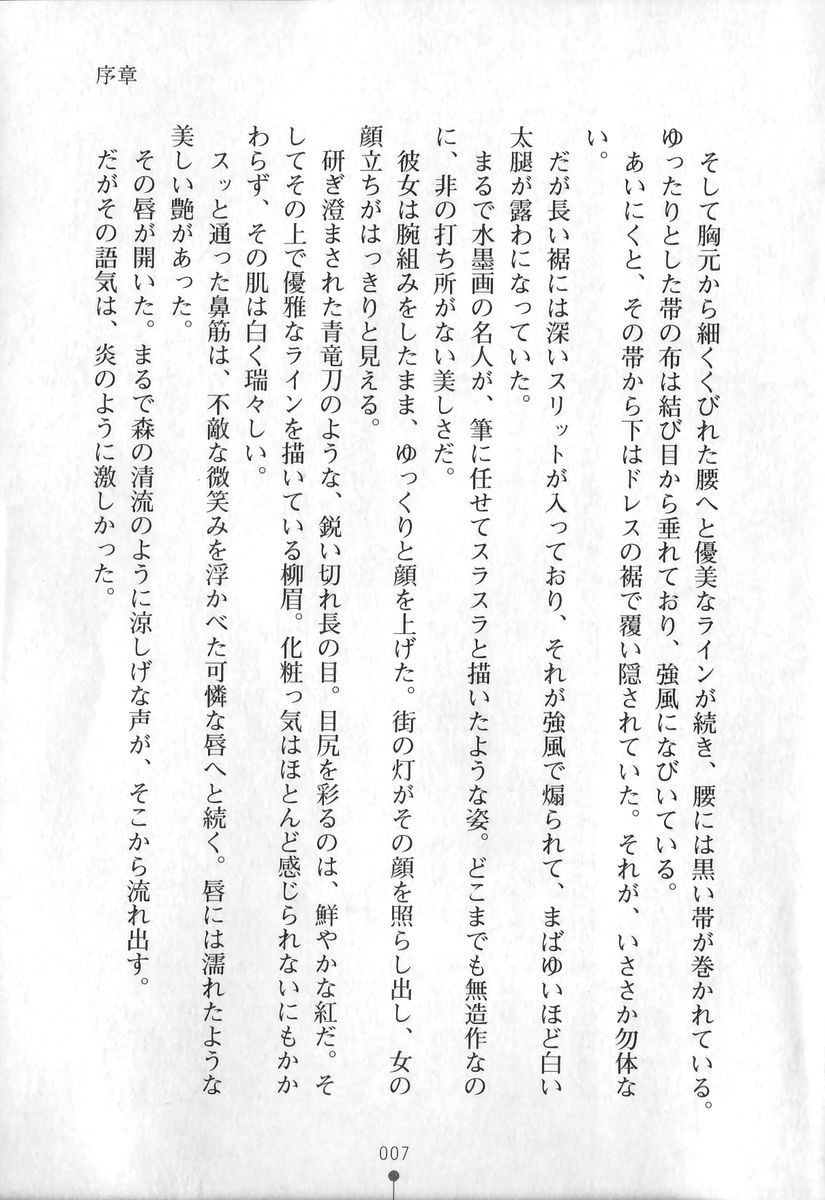 序章
　そして胸元から細くくびれた腰へと優美なラインが続き、腰には黒い帯が巻かれている。
ゆったりとした帯の布は結び目から垂れており、強風になびいている。
　あいにくと、その帯から下はドレスの裾で覆い隠されていた。それが、いささか勿体な
い。
　だが長い裾には深いスリットが入っており、それが強風で煽られて、まばゆいほど白い
太腿が露わになっていた。
　まるで水墨画の名人が、筆に任せてスラスラと描いたような姿。どこまでも無造作なの
に、非の打ち所がない美しさだ。
　彼女は腕組みをしたまま、ゆっくりと顔を上げた。街の灯がその顔を照らし出し、女の
顔立ちがはっきりと見える。
　研ぎ澄まされた青竜刀のような、鋭い切れ長の目。目尻を彩るのは、鮮やかな紅だ。そ
してその上で優雅なラインを描いている柳眉。化粧っ気はほとんど感じられないにもかか
わらず、その肌は白く瑞々しい。
　スッと通った鼻筋は、不敵な微笑みを浮かべた可憐な唇へと続く。唇には濡れたような
美しい艶があった。
　その唇が開いた。まるで森の清流のように涼しげな声が、そこから流れ出す。
　だがその語気は、炎のように激しかった。
007